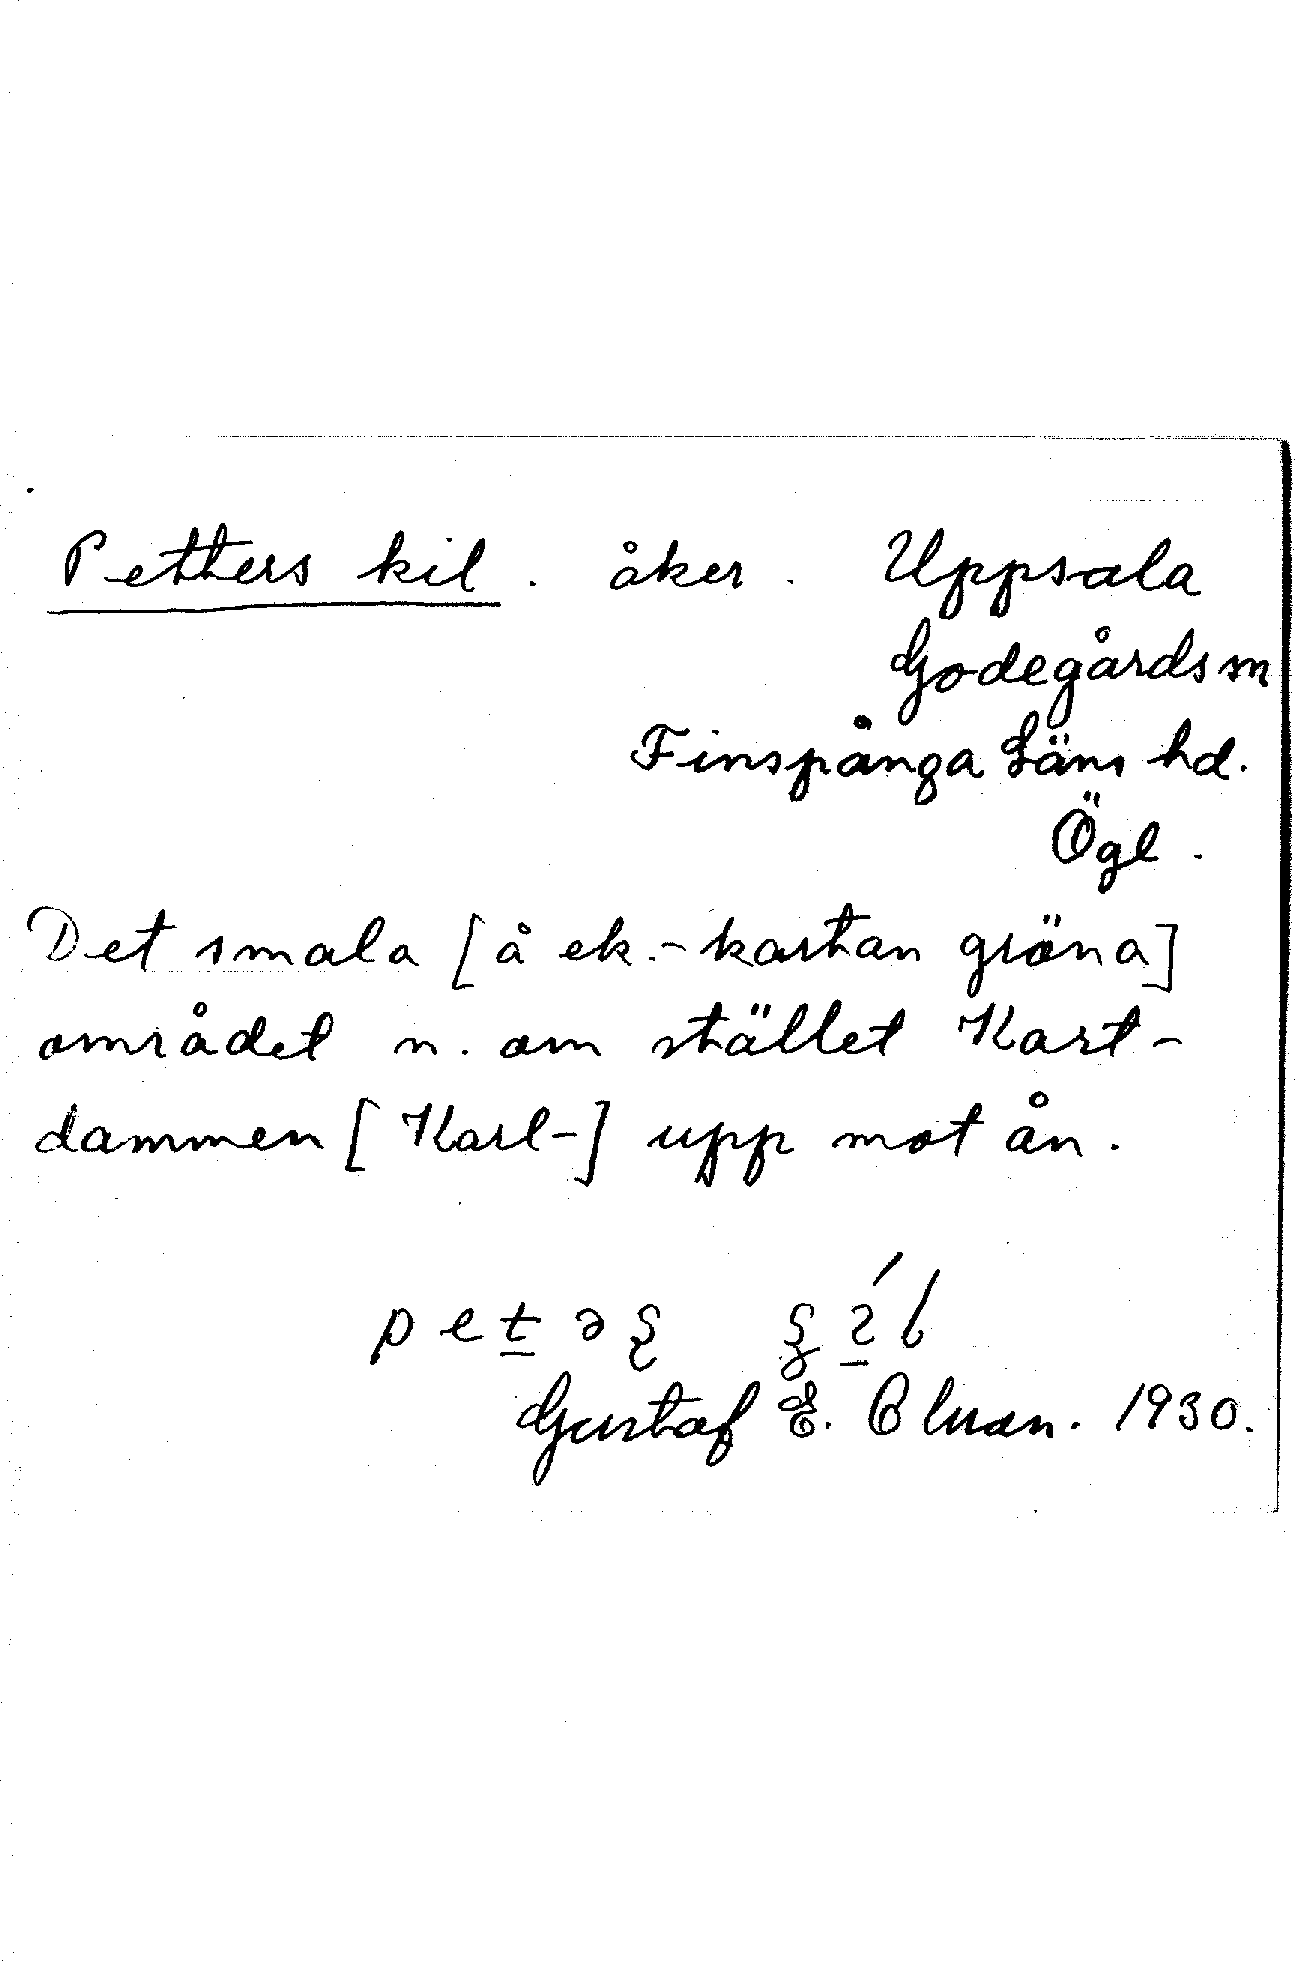 Petters kil. åker. Uppsala
Godegårds sn
Finspånga läns hd.
Ögl.
Det smala [å ek.-kartan gröna]
området n. om stället Kart-
dammen [Karl-] upp mot ån.
Gustaf E. 1930.